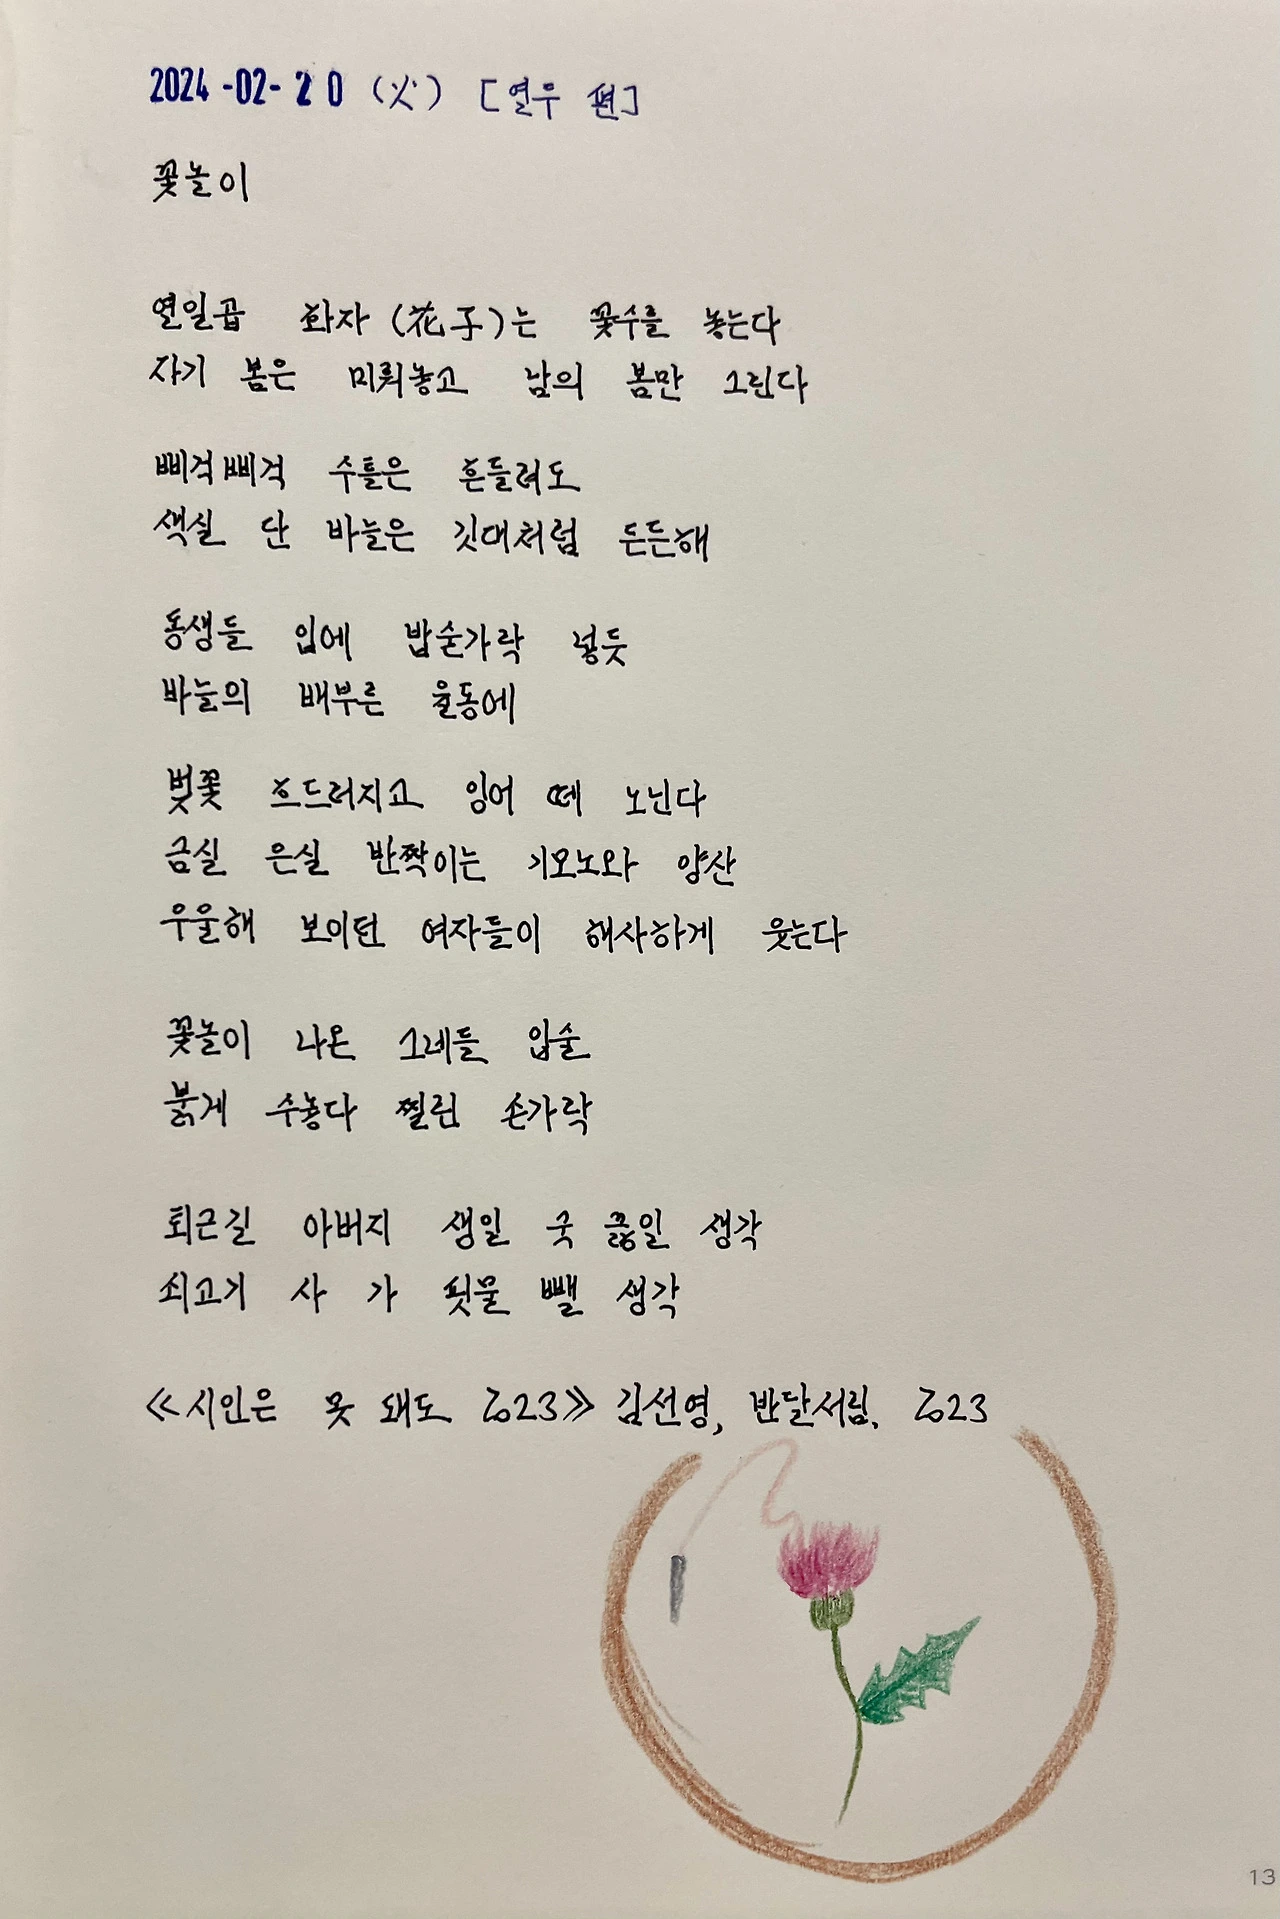 2024-02-20 (火) [열무 편]
꽃놀이
열일곱 화자(花子)는 꽃수를 놓는다
자기 봄은 미뤄놓고 남의 봄만 그린다
삐걱삐걱 수틀은 흔들려도
색실 단 바늘은 깃대처럼 든든해
동생들 입에 밥숟가락 넣듯
바늘의 배부른 율동에
벚꽃 흐드러지고 잉어 떼 노닌다
금실 은실 반짝이는 기모노와 양산
우울해 보이던 여자들이 해사하게 웃는다
꽃놀이 나온 그네들 입술
붉게 수놓다 찔린 손가락
퇴근길 아버지 생일 국 끓일 생각
쇠고기 사 가 핏물 뺄 생각
≪시인은 못 돼도 2023≫ 김선영, 반달서림. 2023
13